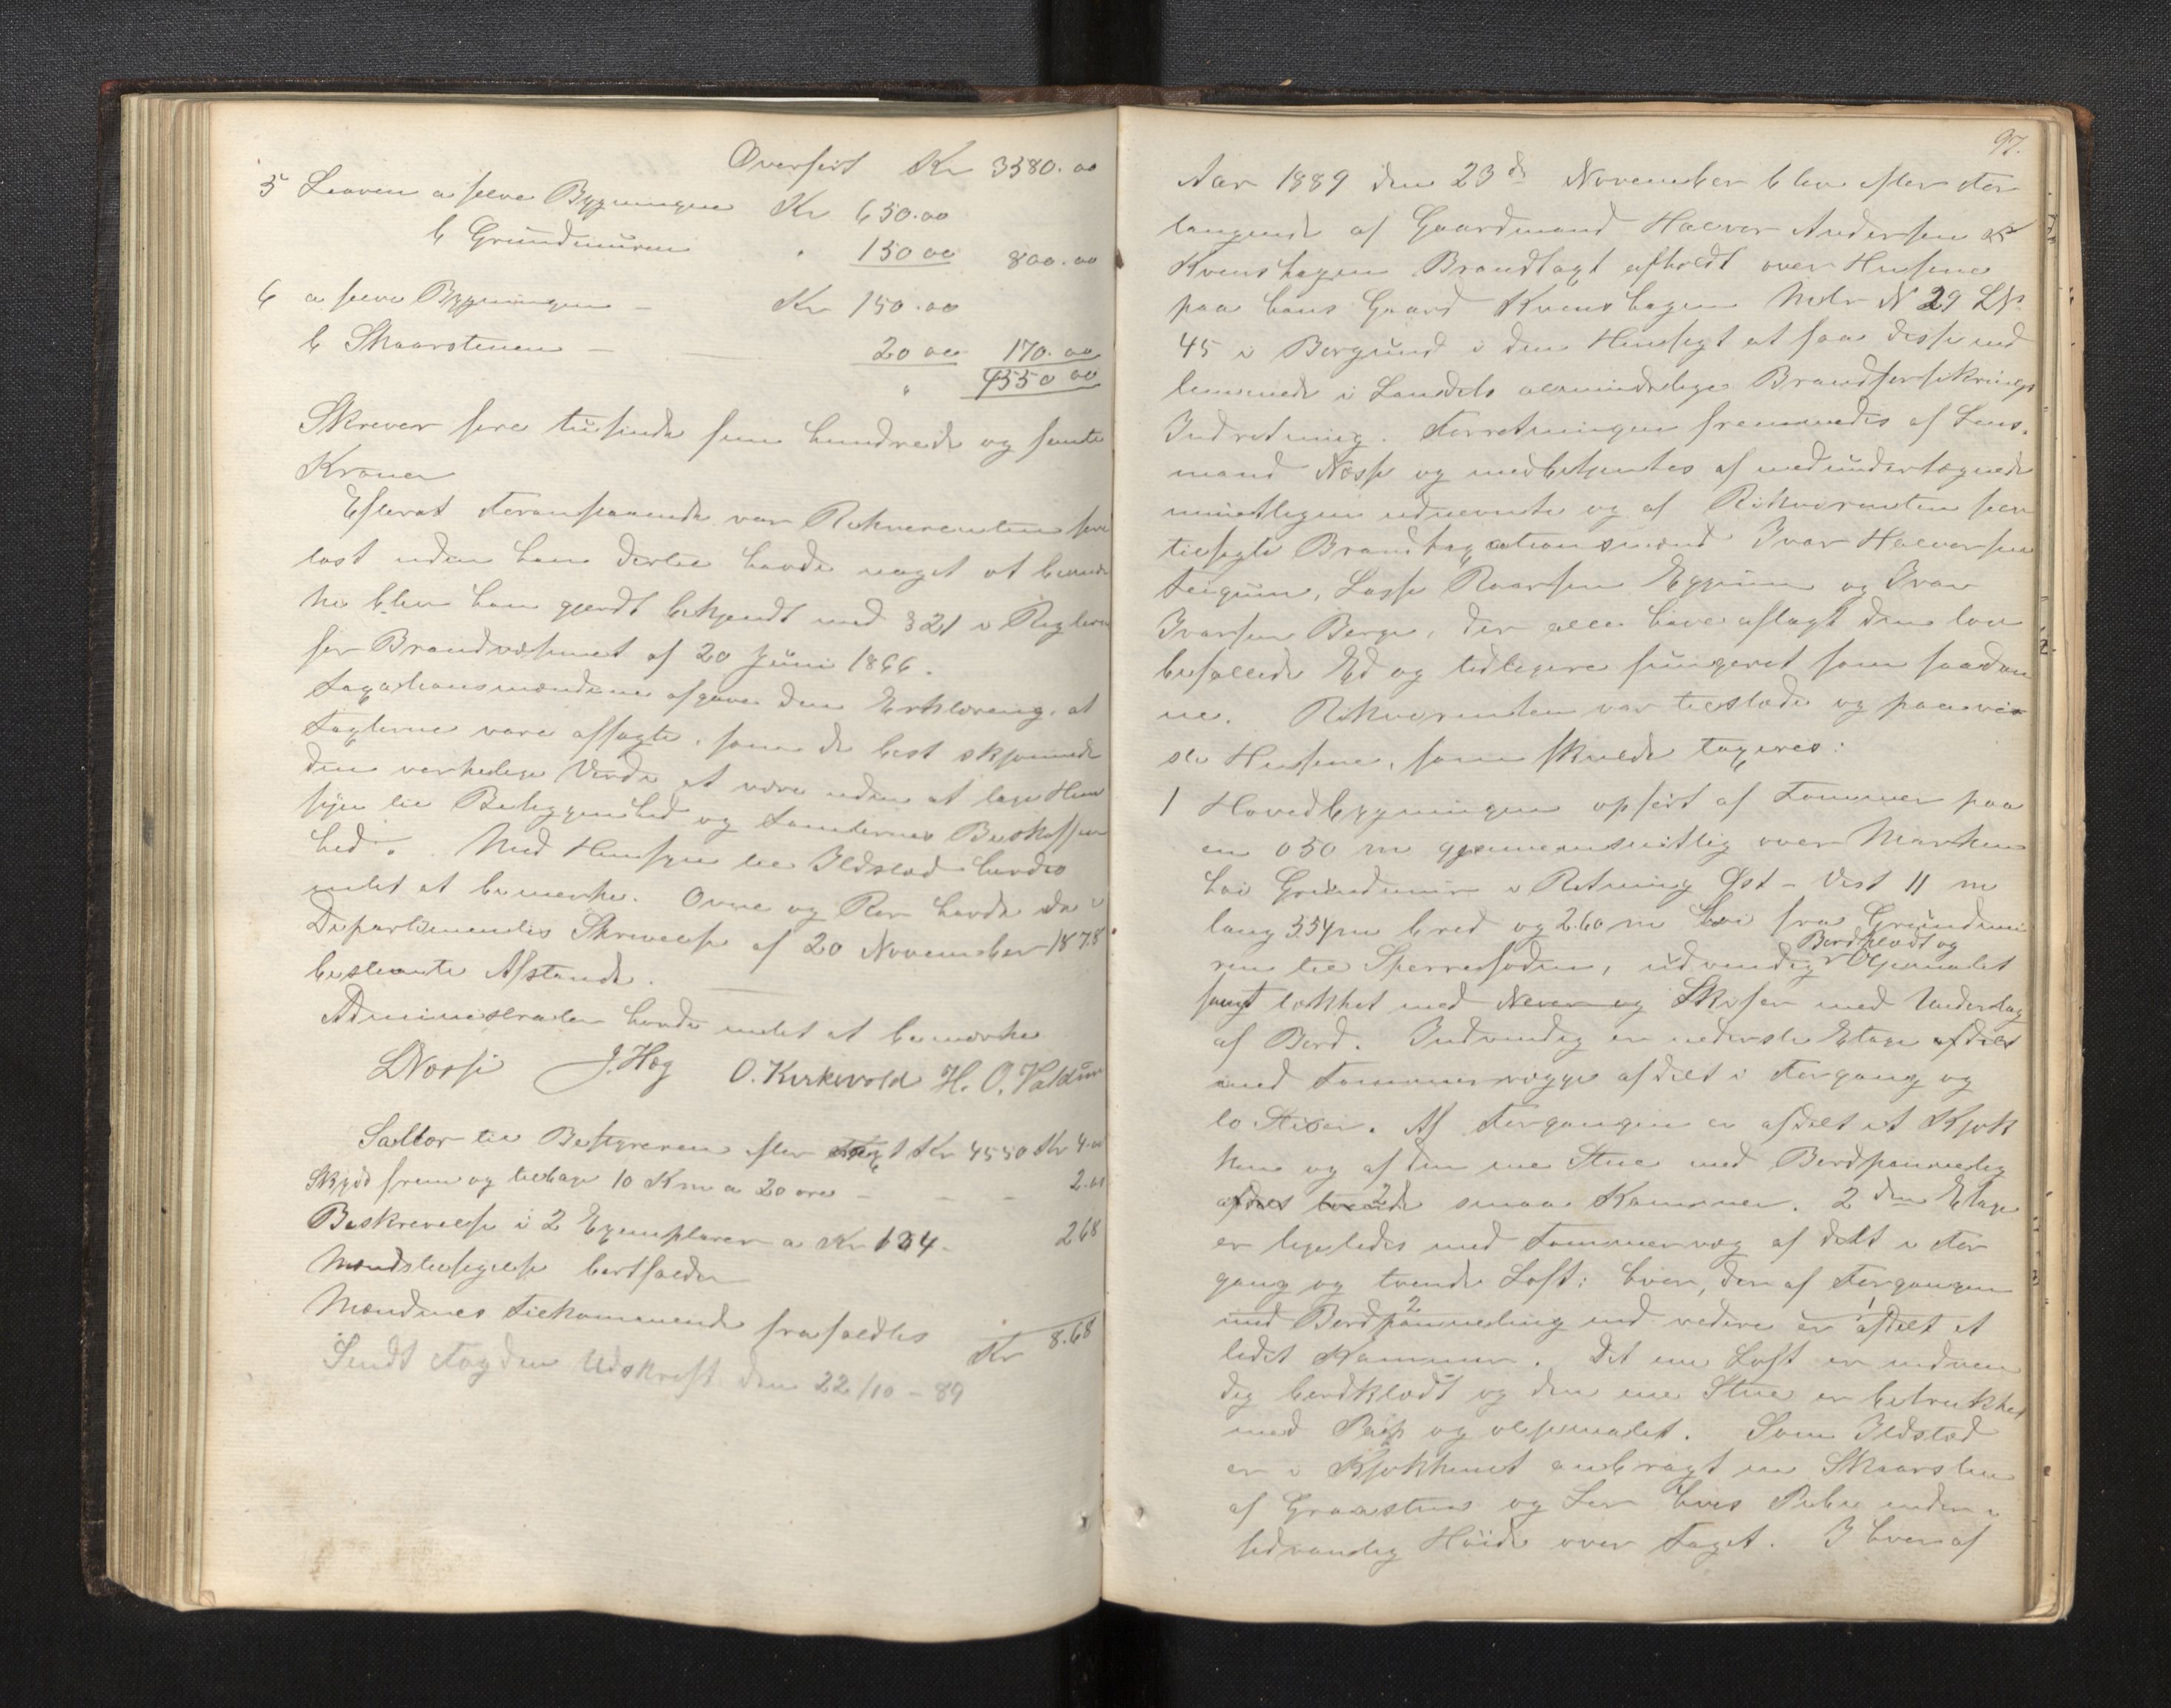 Overført Kr 3580.00
5 Laaven a selve Bygningen Kr 650.00
b Grundmuren " 150 00 800.00
6 a selve Bygningen - Kr 150.00
b Skaarstenen - 20 00 170.00
" 4550 00
Skriver fire tusinde fem hundrede og femti
Kroner
Efterat Foranstaaende var Rekvirenten fore
læst uden han dertil havde noget at bemær
ke blev han gjordt bekjendt med § 21 i Reglem
for Brandvæsenet af 20 Juni 1866.
Taxationsmændene afgave den Erklæring, at
Taxterne vare afsagte, som de bedst skjønnede
den virkelige Værdi at være uden at tage Hen
syn til Beliggenhed og Tomternes Beskaffen
hed. Med Hensyn til Ildsted havdes
intet at bemærke. Ovne og Rør havde de i
Departementets Skrivelse af 20 November 1878
bestemte Afstande.
Administrator havde intet at bemærke
LNæsse J. Hæg O. Kirkevold H. O. Voldum
Sallær til Bestyreren efter Taxt Kr 4550 Kr 4.00
Skyds frem og tilbage 10 Km a 20 øre - - - 2.00
Beskrivelse i 2 Exemplarer a Kr 134. 268
Mændstilsigelse bortfalder
Mændenes Tilkommende frafaldtes
Kr 8.68
Sendt Fogden Udskrift den 22/10 - 89
97.
Aar 1889 den 23de November blev efter For
langende af Gaardmand Halvor Andersen
Kvenshagen Brandtaxt afholdt over Husene
paa hans Gaard Kvenshagen Matr N 29 LN
45 i Borgund i den Hensigt at faa disse ind
lemmede i Landets almindelige Brandforsikrings
Indretning. Forretningen fremmedes af Lens-
mand Næsse og medbetjentes af medundertegnede
minitligen udnævnte og af Rekvirenten selv
tilsagte Brandtaxationsmænd Ivar Halvorsen
Teigum, Lasse Roarsen Eggum og Ivar
Ivarsen Berge, der alle have aflagt den lov
befallede Ed og tidligere fungeret som saadan
ne. Rekvirenten var tilstede og paavis
ste Husene, som skulde taxeres:
1 Hovedbygningen opført af Tømmer paa
en 050 m gjennemsnitlig over Marken
høi Grundmur i Retning Øst - Vest 11 m
lang 5.54 m bred og 2.60 m høi fra Grundmu
Bordklædt og
ren til Sperrefoden, udvendig Oljemalet
samt tækket med Never og Skifer med Underlag
af Bord. Indvendig er nederste Etage afdelt
med Tømmervægge afdelt i Forgang og
to Stuer. Af Forgangen er afdelt et Kjøk
ken og af den ene Stue med Bordpaneling
afdelt tvende 2de smaa Kammer. 2den Etage
er ligeledes med Tømmervæg afdelt i For
gang og tvende Loft: hver, der af Forgangen
med Bordpanneling 2 ved videre er 1 afdelt et
lidet Kammer. Det ene Loft er indven
dig bordklædt og den ene Stue er betrukket
med Pap og oljemalet. Som Ildsted
er i Kjøkkenet anbragt en Skaarsten
af Graasten og Ler hvis Pibe ender i
sedvanlig Høide over Taget. I hver af